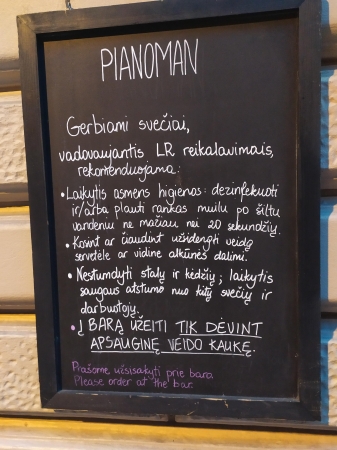 PIANOMAN
Gerbiami svečiai,
vadovaujantis LR reikalavimais,
rekomenduojama:
• Laikytis asmens higienos: dezinfekuoti
ir/arba plauti rankas muilu po šiltu
vandeniu ne mažiau nei 20 sekundžių.
• Kosint ar čiaudint uždengti veidą
servetėle ar vidine alkūnės dalimi.
• Nestumdyti stalų ir kėdžių; laikytis
saugaus atstumo nuo kitų svečių ir
darbuotojų.
• Į BARĄ UŽEITI TIK DĖVINT
APSAUGINĘ VEIDO KAUKĘ.
Prašome užsisakyti prie baro
Please order at the bar